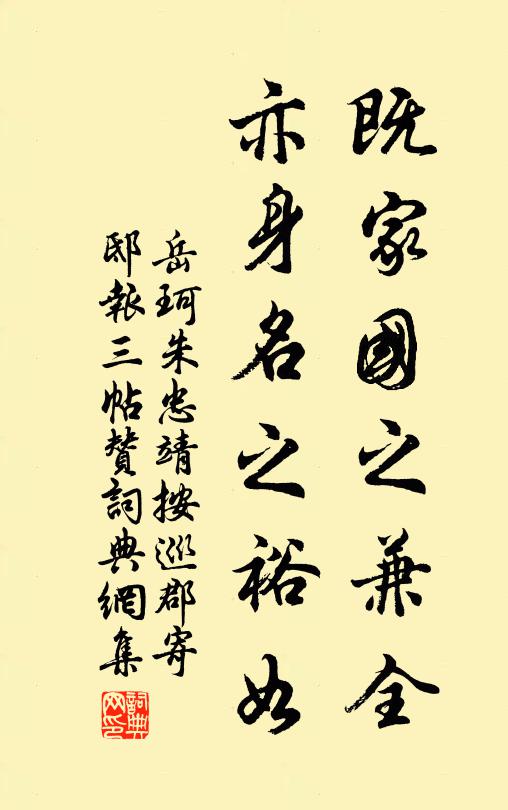 既家國之兼全
亦身名之裕如
岳珂朱忠靖按巡郡寄
邸報三帖贊詞典網集
詞典网印